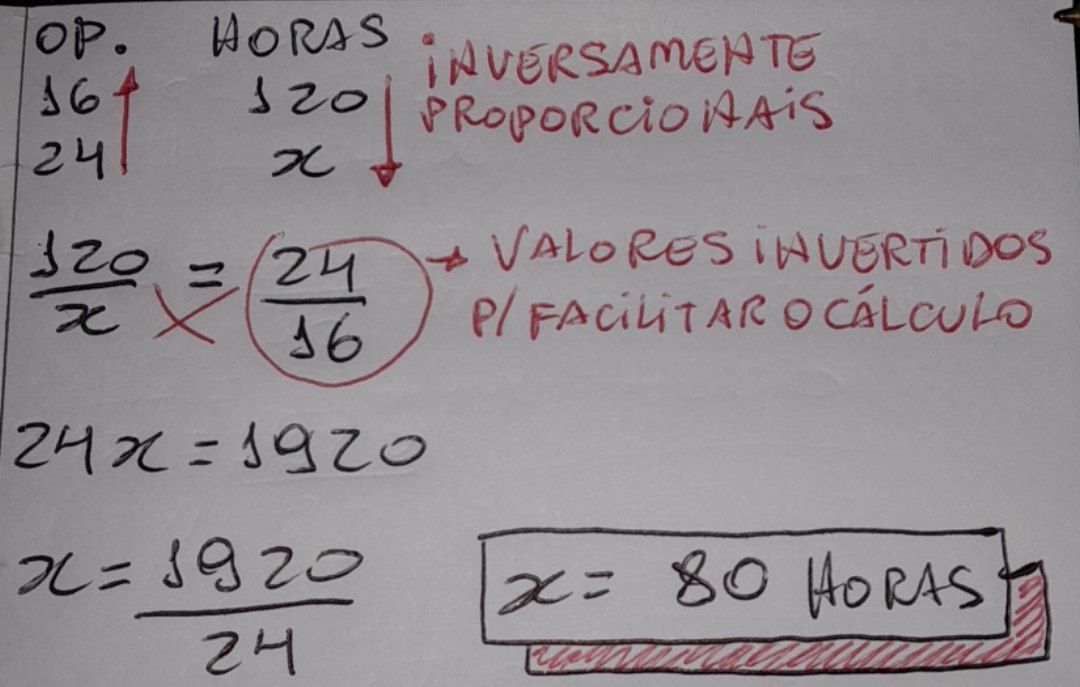 OP. HORAS
16 120
24 x
INVERSAMENTE
PROPORCIONAIS
120/x = 24/16
VALORES INVERTIDOS
P/ FACILITAR O CÁLCULO
24x = 1920
x = 1920/24
x = 80 HORAS